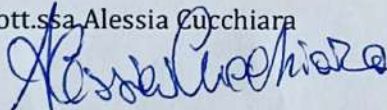 ott.ssa Alessia Cucchiara
Alessia Cucchiara